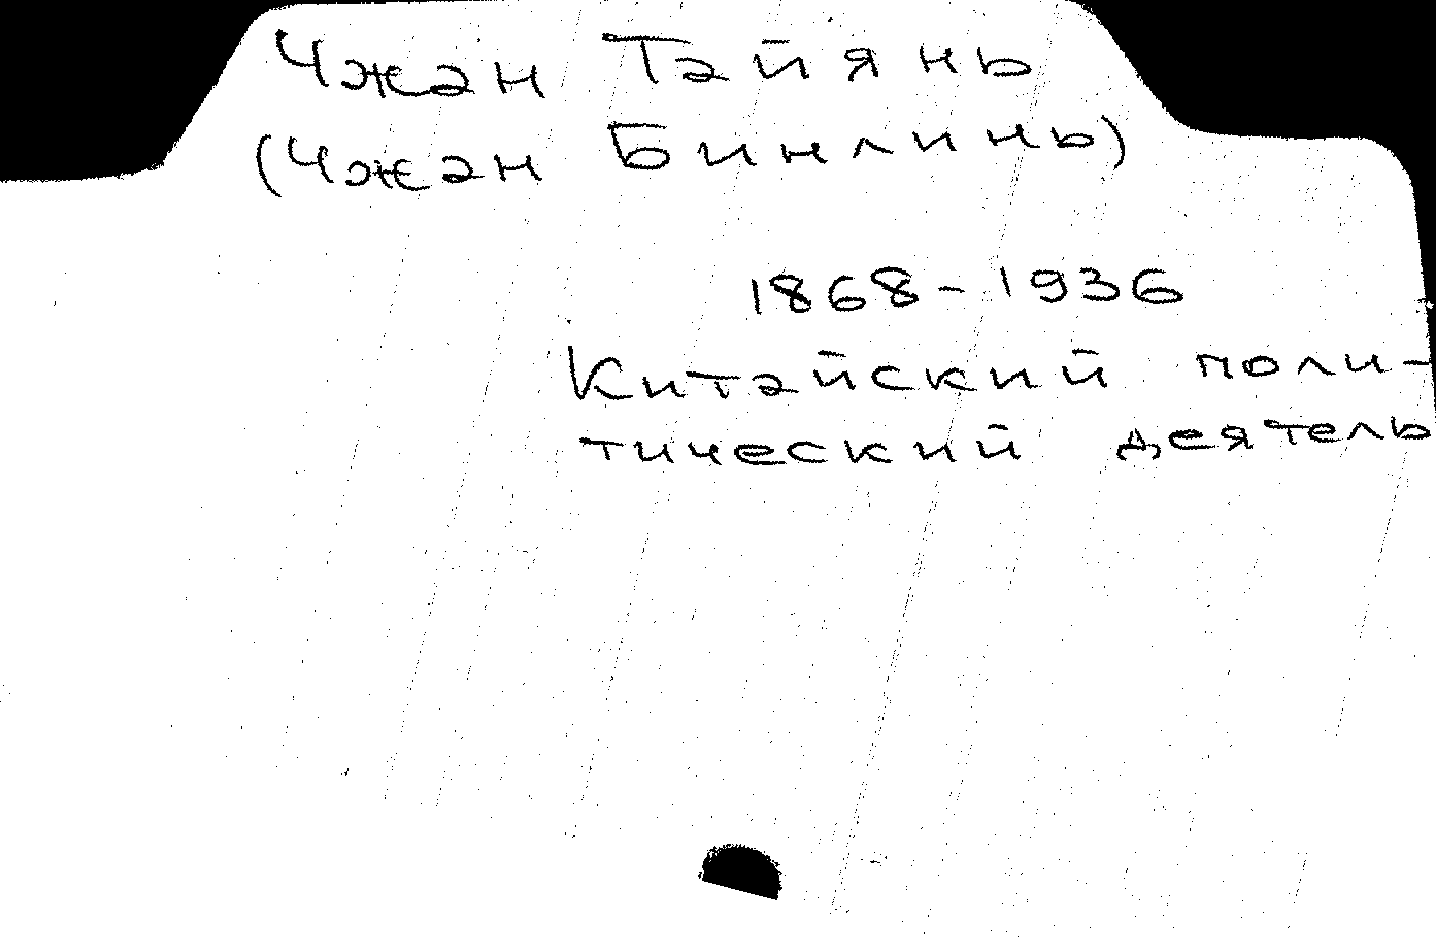 Чжан Тайянь
(Чжан Бинлинь)
1868-1936
Китайский поли-
тический деятель